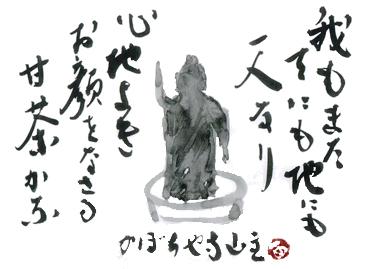 我もまた
天にも地にも
一人なり
心地よき
お顔をなさる
甘茶かな
かぼちゃ寺山主